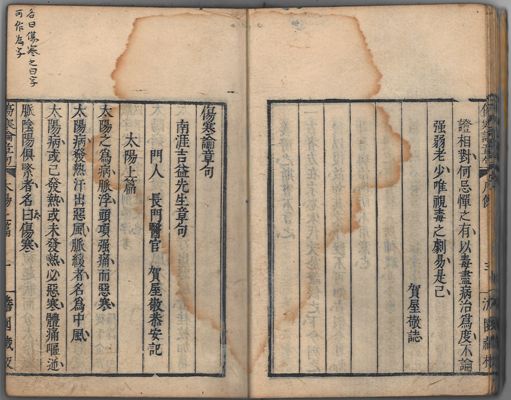 證相對何忌憚之有以毒盡病治為度不論
強弱老少唯視毒之劇易是已
賀屋敬誌
傷寒論章句
南涯吉益先生章句
門人 長門醫官 賀屋敬恭安記
太陽上篇
太陽之為病脈浮頭項强痛而惡寒
太陽病發熱汗出惡風脈緩者名為中風
太陽病或已發熱或未發熱必惡寒體痛嘔逆
脈陰陽俱緊者名曰傷寒
傷寒論章句 太陽上篇 一
名曰傷寒之曰字
可作為字